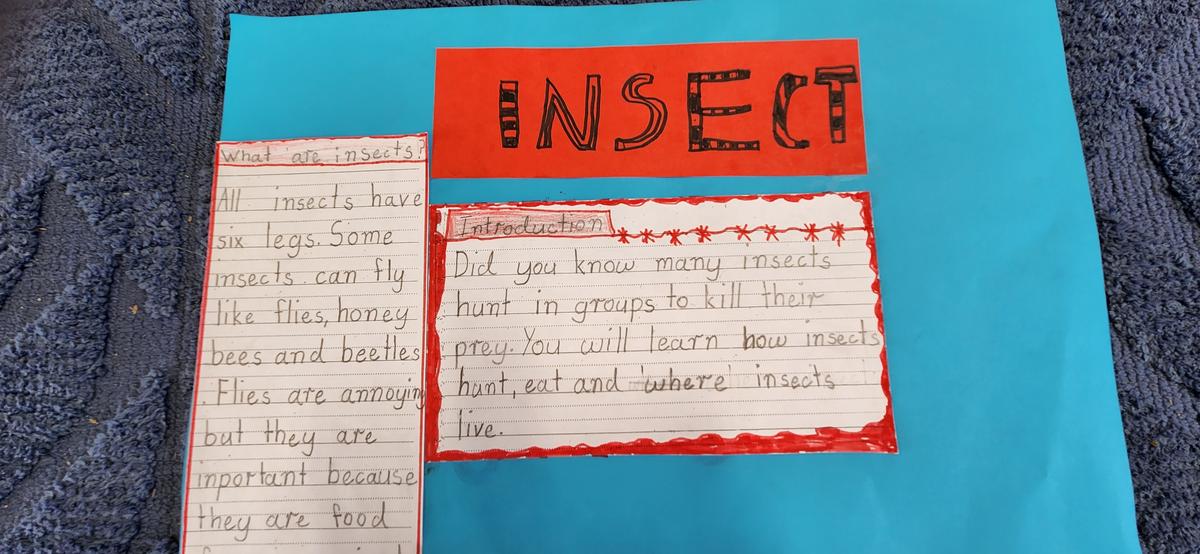 INSECT
What are insects?
All insects have
six legs. Some
insects can fly
like flies, honey
bees and beetles
. Flies are annoying
but they are
inportant because
they are food
Introduction
Did you know many insects
hunt in groups to kill their
prey. You will learn how insects
hunt, eat and 'where' insects
live.